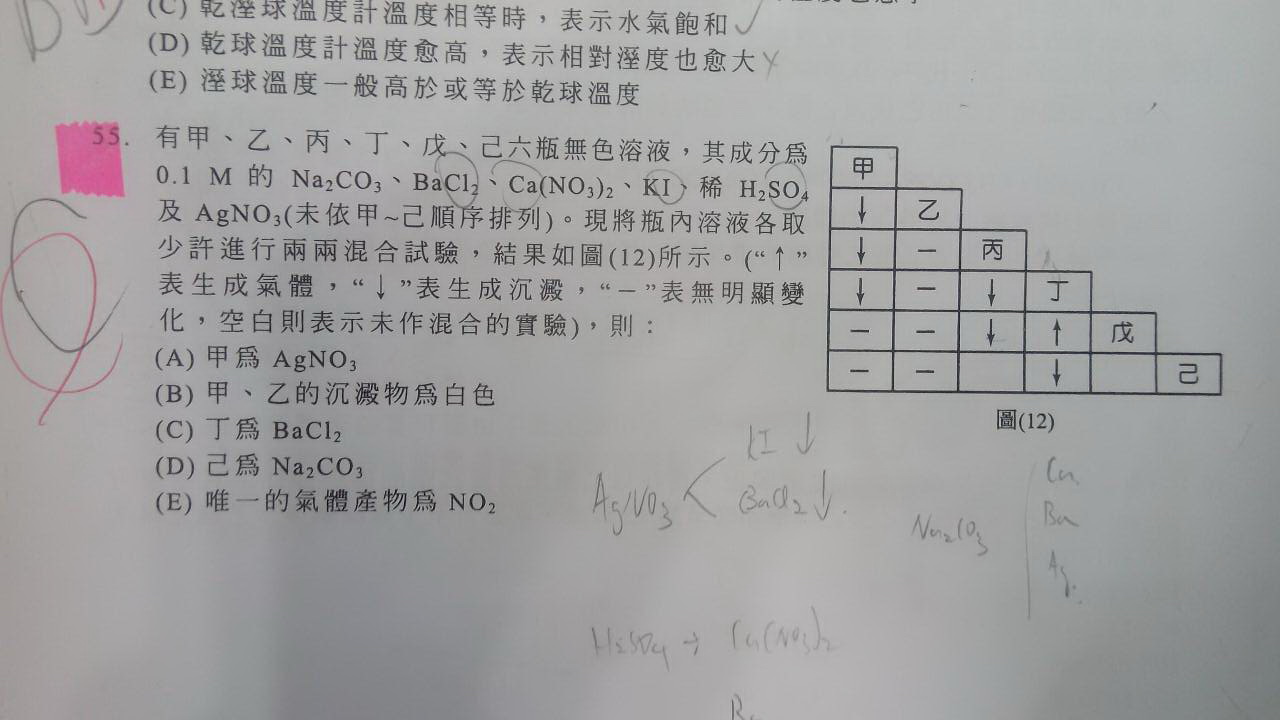 (C) 乾溼球溫度計溫度相等時，表示水氣飽和
(D) 乾球溫度計溫度愈高，表示相對溼度也愈大
(E) 溼球溫度一般高於或等於乾球溫度
55. 有甲、乙、丙、丁、戊、己六瓶無色溶液，其成分為
0.1 M 的 Na₂CO₃、BaCl₂、Ca(NO₃)₂、KI、稀 H₂SO₄
及 AgNO₃(未依甲~己順序排列)。現將瓶內溶液各取
少許進行兩兩混合試驗，結果如圖(12)所示。(“↑”
表生成氣體，“↓”表生成沉澱，“－”表無明顯變
化，空白則表示未作混合的實驗)，則：
(A) 甲為 AgNO₃
(B) 甲、乙的沉澱物為白色
(C) 丁為 BaCl₂
(D) 己為 Na₂CO₃
(E) 唯一的氣體產物為 NO₂
甲
↓ 乙
↓ － 丙
↓ － ↓ 丁
－ － ↓ ↑ 戊
－ － ↓ 己
圖(12)
KI ↓
AgNO₃ < BaCl₂ ↓
Na₂CO₃
Ca
Ba
Ag
H₂SO₄ → Ca(NO₃)₂
Ba